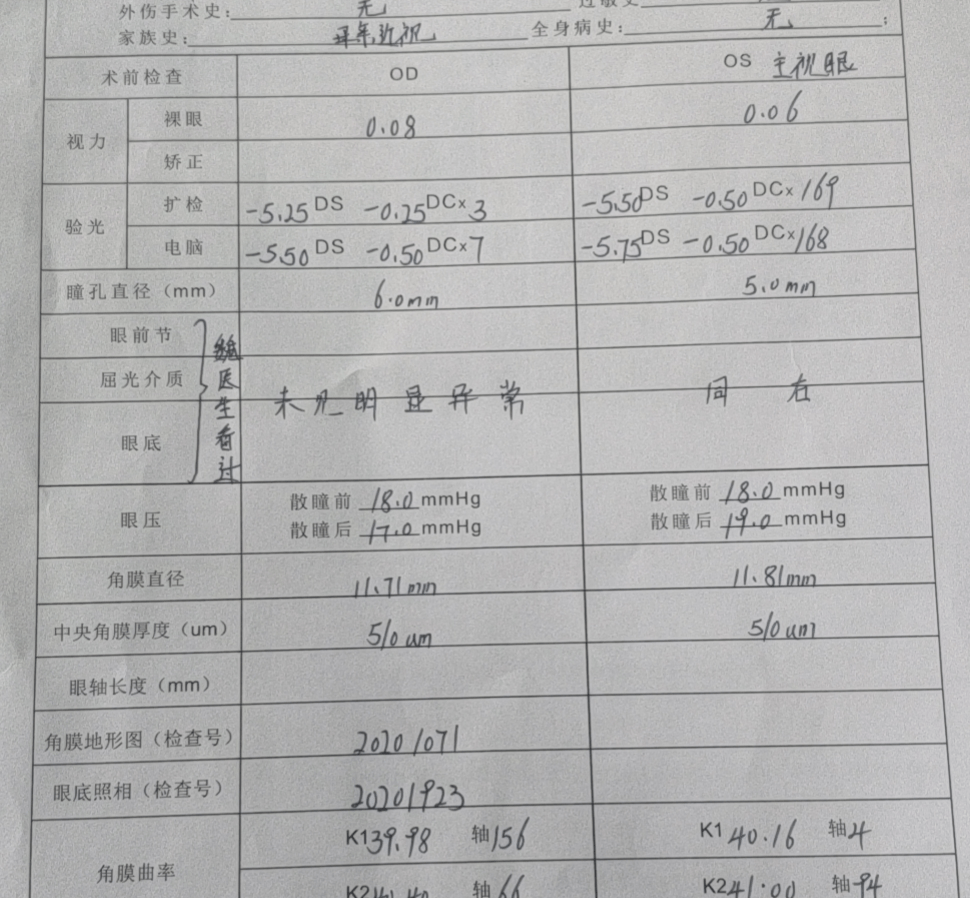 外伤手术史: 无
家族史: 近视 全身病史: 无 ;
术前检查 OD OS 主视眼
视力 裸眼 0.08 0.06
矫正
验光 扩检 -5.25 DS -0.25 DC× 3 -5.50 DS -0.50 DC× 169
电脑 -5.50 DS -0.50 DC× 7 -5.75 DS -0.50 DC× 168
瞳孔直径（mm） 6.0mm 5.0mm
眼前节
屈光介质 医生看过 未见明显异常 同右
眼底
眼压 散瞳前 18.0 mmHg 散瞳前 18.0 mmHg
散瞳后 17.0 mmHg 散瞳后 19.0 mmHg
角膜直径 11.71mm 11.81mm
中央角膜厚度（um） 510um 510um
眼轴长度（mm）
角膜地形图（检查号） 20201071
眼底照相（检查号） 20201923
角膜曲率 K1 39.98 轴 156 K1 40.16 轴 4
K2 轴 66 K2 41.00 轴 94